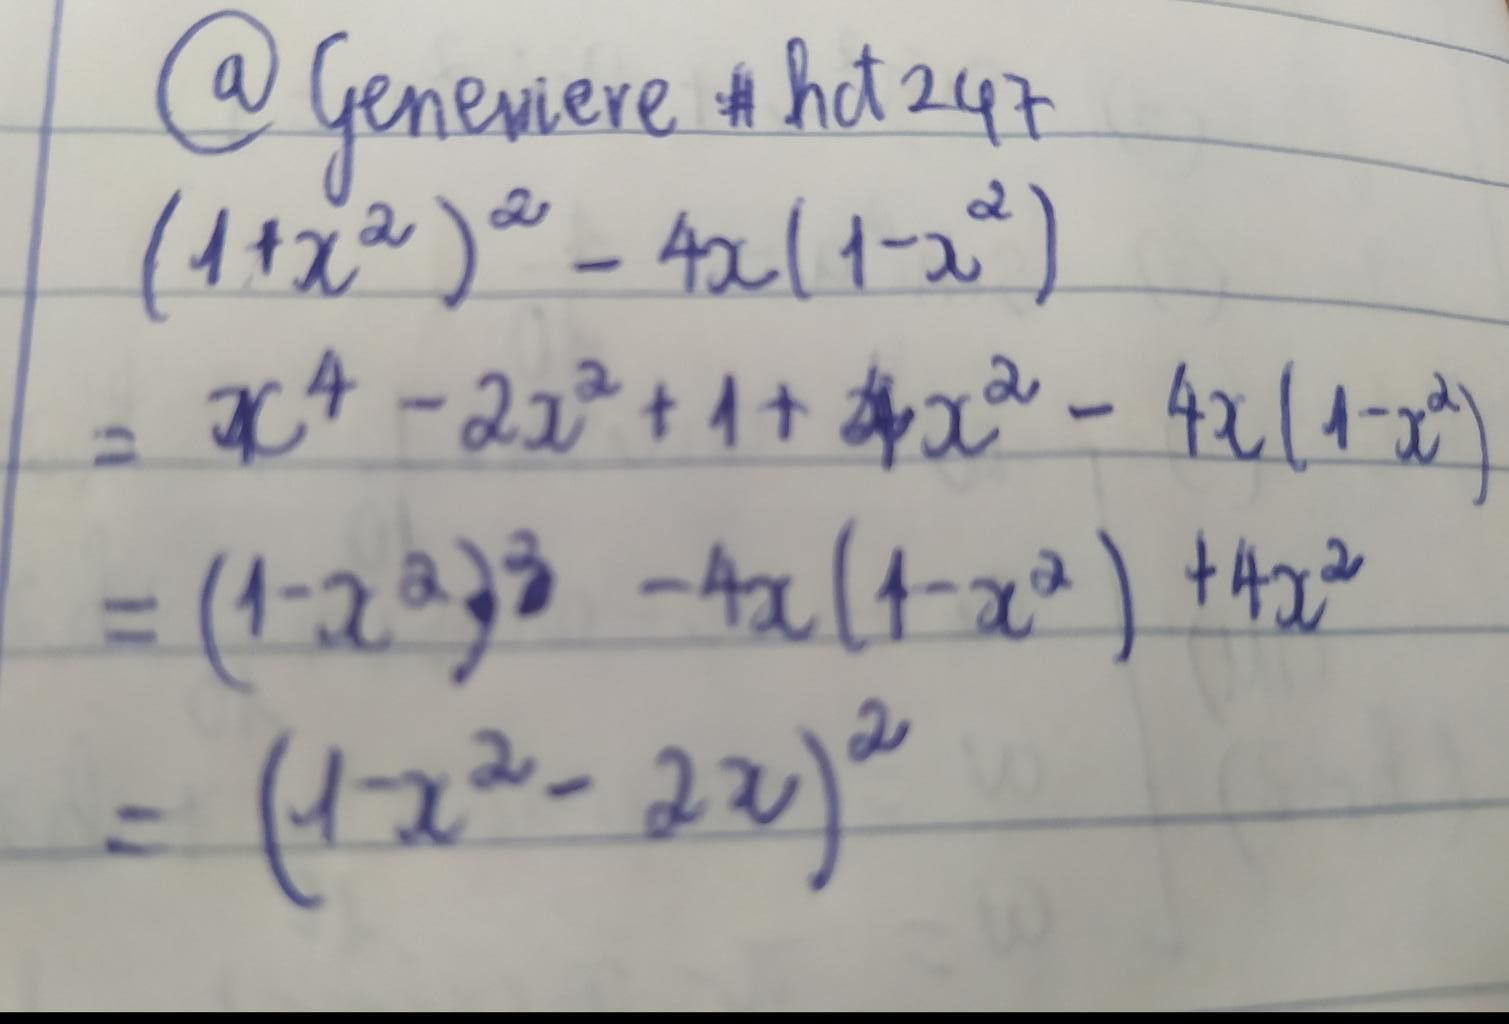 @Geneviere #hct247
(1+x²)² - 4x(1-x²)
= x⁴ - 2x² + 1 + 4x² - 4x(1-x²)
= (1-x²)² - 4x(1-x²) + 4x²
= (1-x² - 2x)²